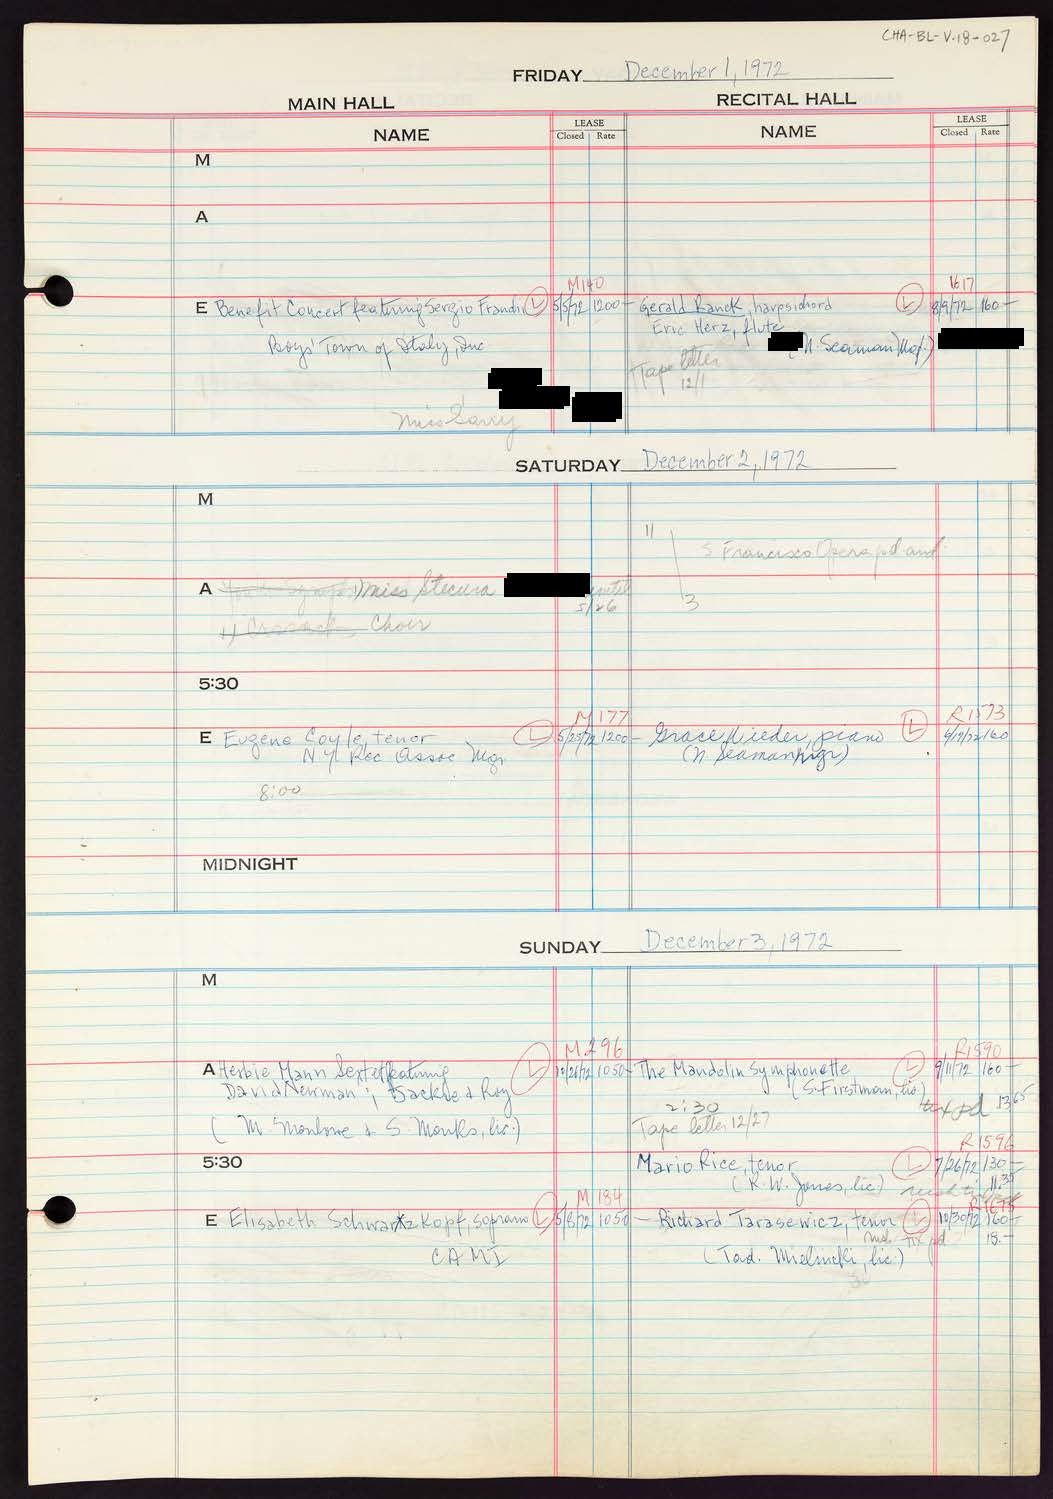 CHA-BL-V.18-027
FRIDAY December 1, 1972
MAIN HALL RECITAL HALL
NAME LEASE Closed Rate NAME LEASE Closed Rate
M
A
M140 1617
E Benefit Concert featuring Sergio Franchi L 5/5/72 1200- Gerald Ranck, harpsichord L 8/9/72 160-
Eric Herz, flute
Boys' Town of Italy, Inc (N. Seaman Mgr.)
Tape letter
12/1
Miss
SATURDAY December 2, 1972
M
11
S Francisco Opera pd aud.
A Miss Stecura
5/26
3
Choir
5:30
M177 R1573
E Eugene Coyle, tenor L 5/25/72 1200- Grace Wieder, piano L 160
NY Rec Assoc Mgr. (N Seaman, mgr)
8:00
MIDNIGHT
SUNDAY December 3, 1972
M
M296 R1590
A Herbie Mann Sextet featuring L 10/26/72 1050- The Mandolin Symphonette L 9/11/72 160-
David Newman; Jackie & Roy (S. Firstman, lic.)
2:30 tax pd 1365
(M. & S. Monks, lic.) Tape letter 12/27
R1596
5:30 Mario Rice, tenor L 7/26/72 130-
(K.W. Jones, lic) 11.35
M184 R1675
E Elisabeth Schwartzkopf, soprano L 5/8/72 1050- Richard Tarasewicz, tenor L 10/30/72 160-
tix pd 18.-
CAMI (Tad. lic.)